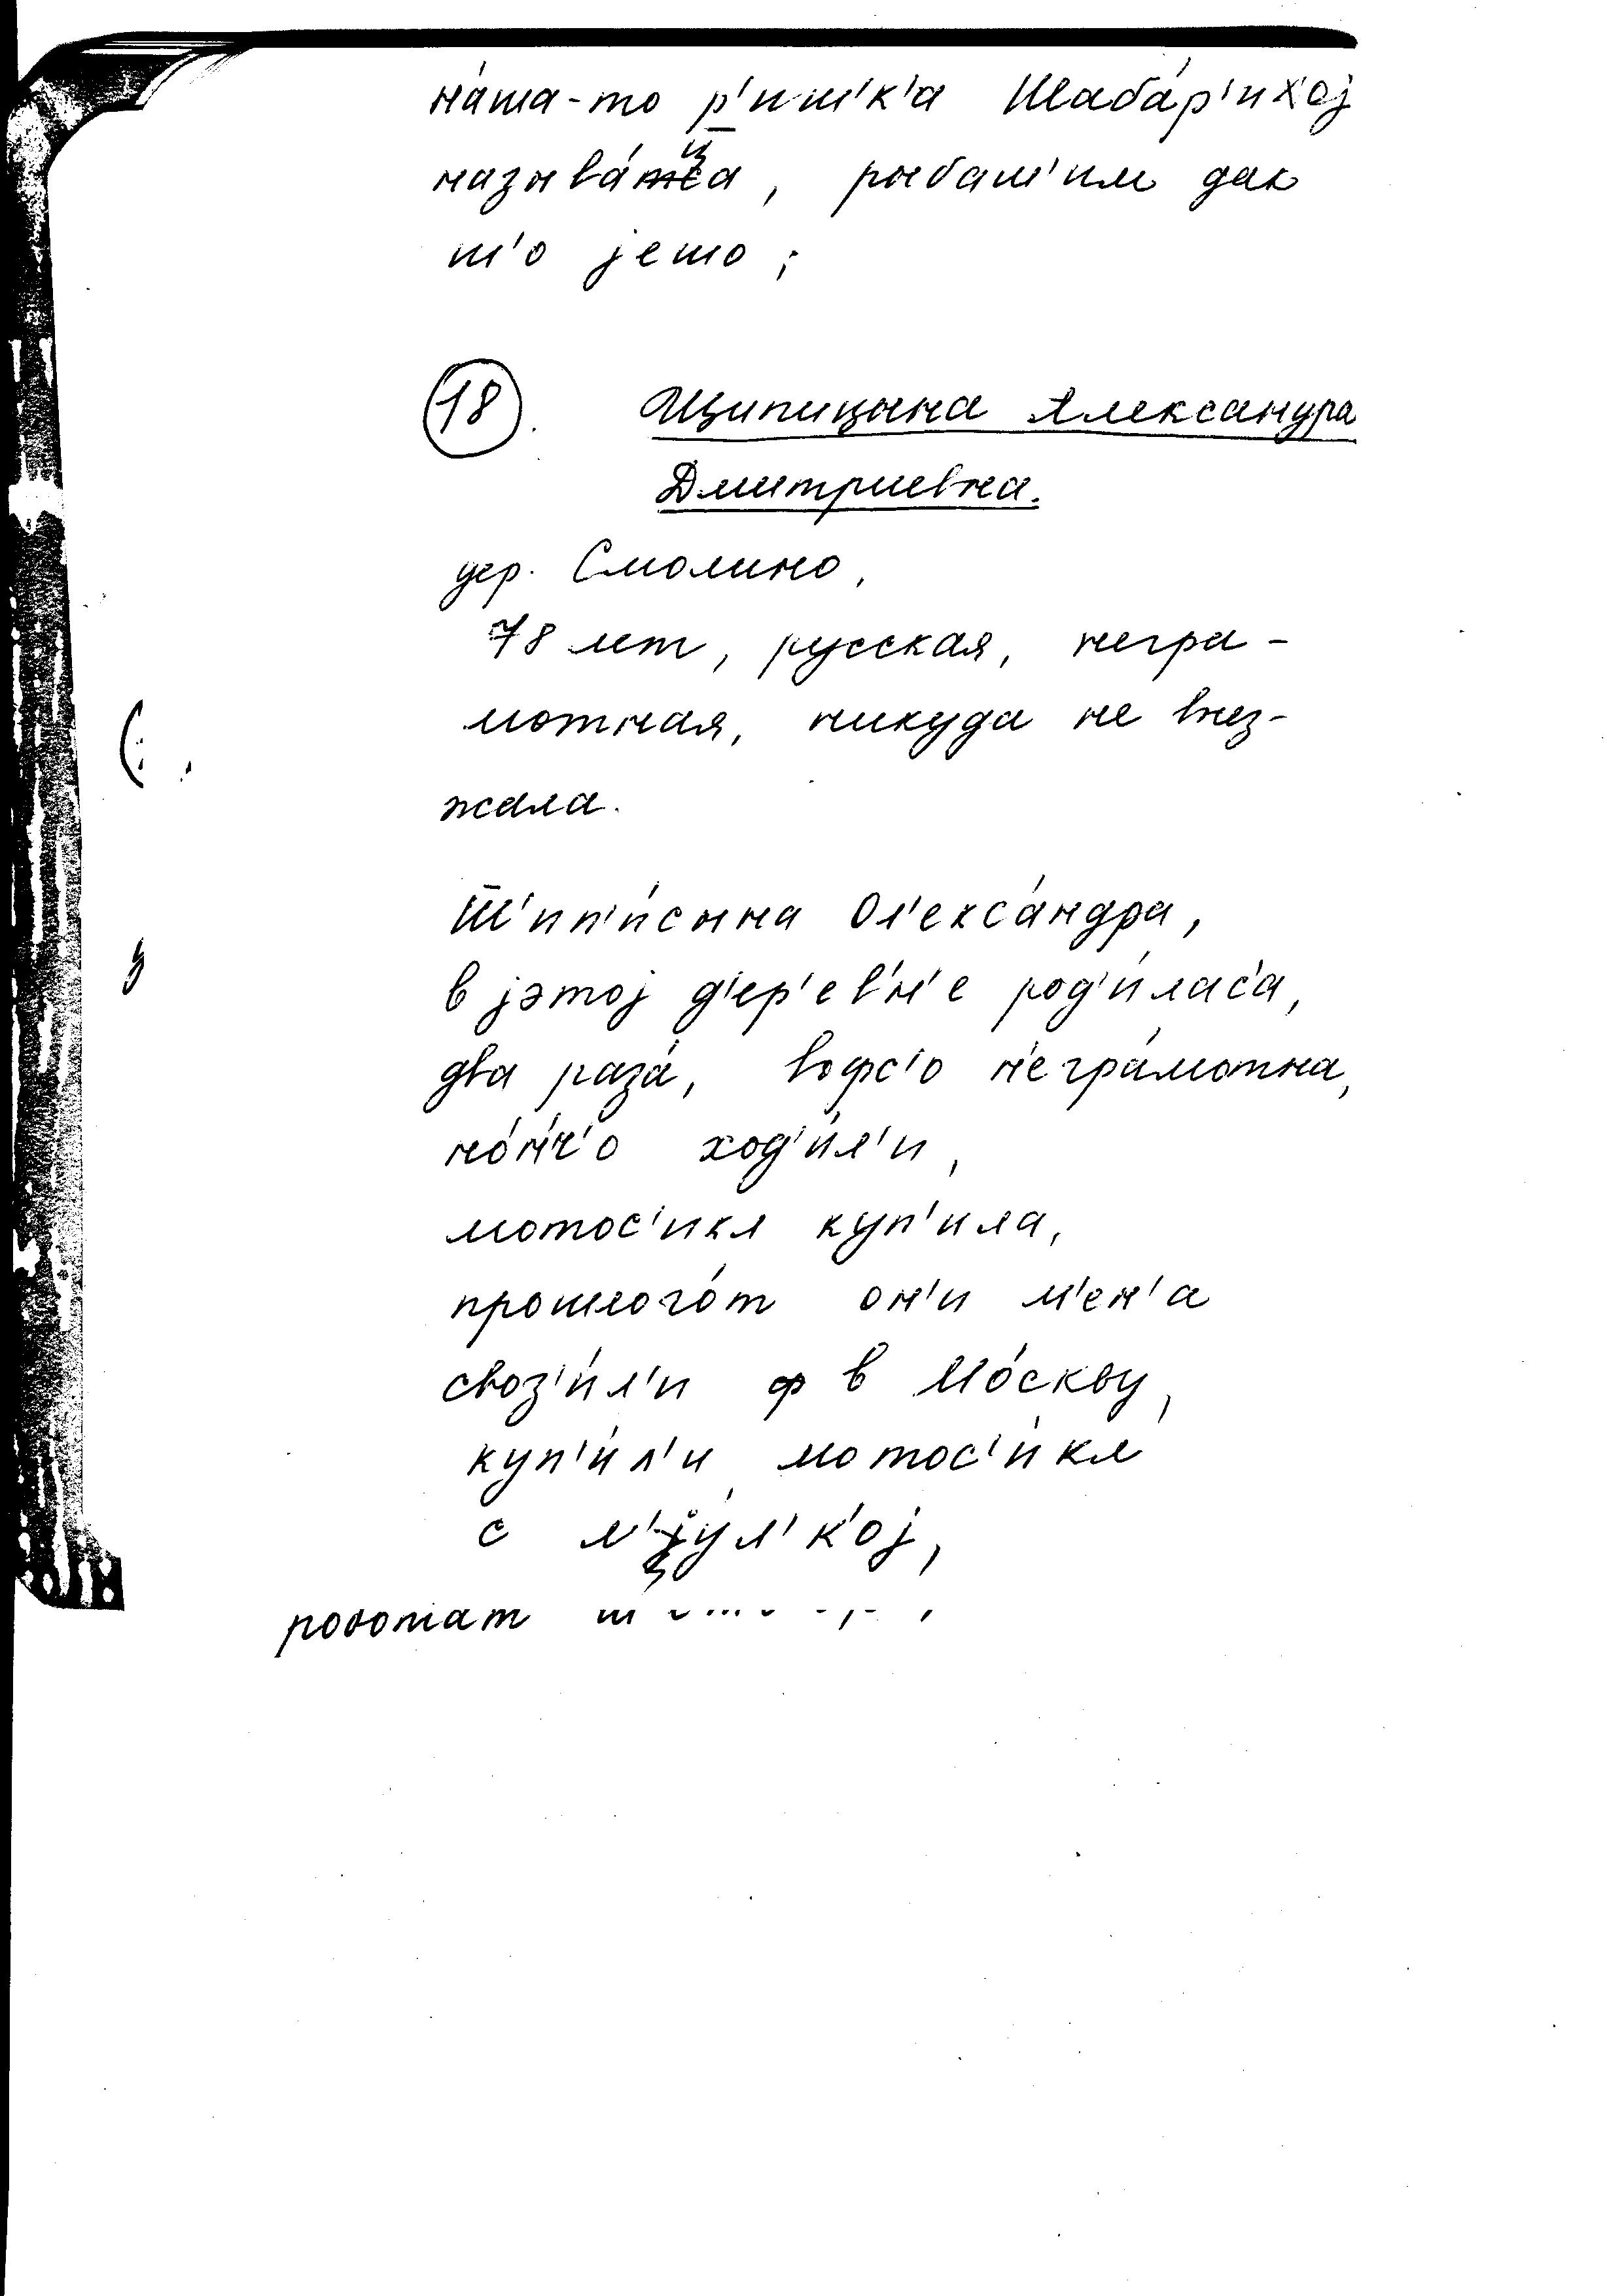 на́ша-то р'иш'к'а Шаба́р'ихој
называ́ца, рыбаш'им дак
ш'о јешо;
18. Щипицына Александра
Дмитриевна.
дер. Смолино,
78 лет, русская, негра-
мотная, никуда не выез-
жала.
Ш̄'ип'и́сына Ол'екса́ндра,
в јэтој д'ер'е́вн'е род'и́лас'а,
два раза́, вофс'о н'егра́мотна,
но́н'ч'о ход'и́л'и,
мотос'икл куп'ила,
прошлого́т он'и м'ен'а
своз'и́л'и ф в Мо́скву,
куп'и́л'и мотос'и́кл
с л'у́л'к'ој,
робо́тат